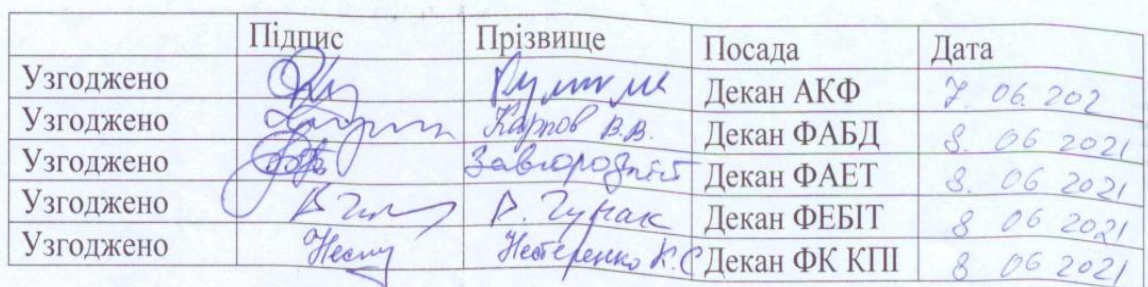 Підпис Прізвище Посада Дата
Узгоджено Декан АКФ 7. 06. 202
Узгоджено Карпов В.В. Декан ФАБД 8. 06 2021
Узгоджено Завгородній Декан ФАЕТ 8. 06 2021
Узгоджено Декан ФЕБІТ 8 06 2021
Узгоджено Нестеренко К.С Декан ФК КПІ 8 06 2021